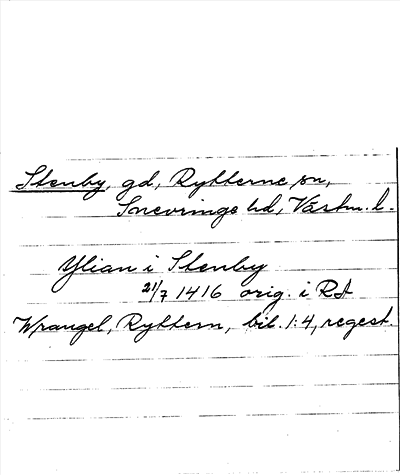 Stenby, gd, Rytterne sn,
Snevringe hd, Västm. l.
Ylian i Stenby
21/7 1416 orig. i RA
Wrangel, Ryttern, bil. 1:4, regest.